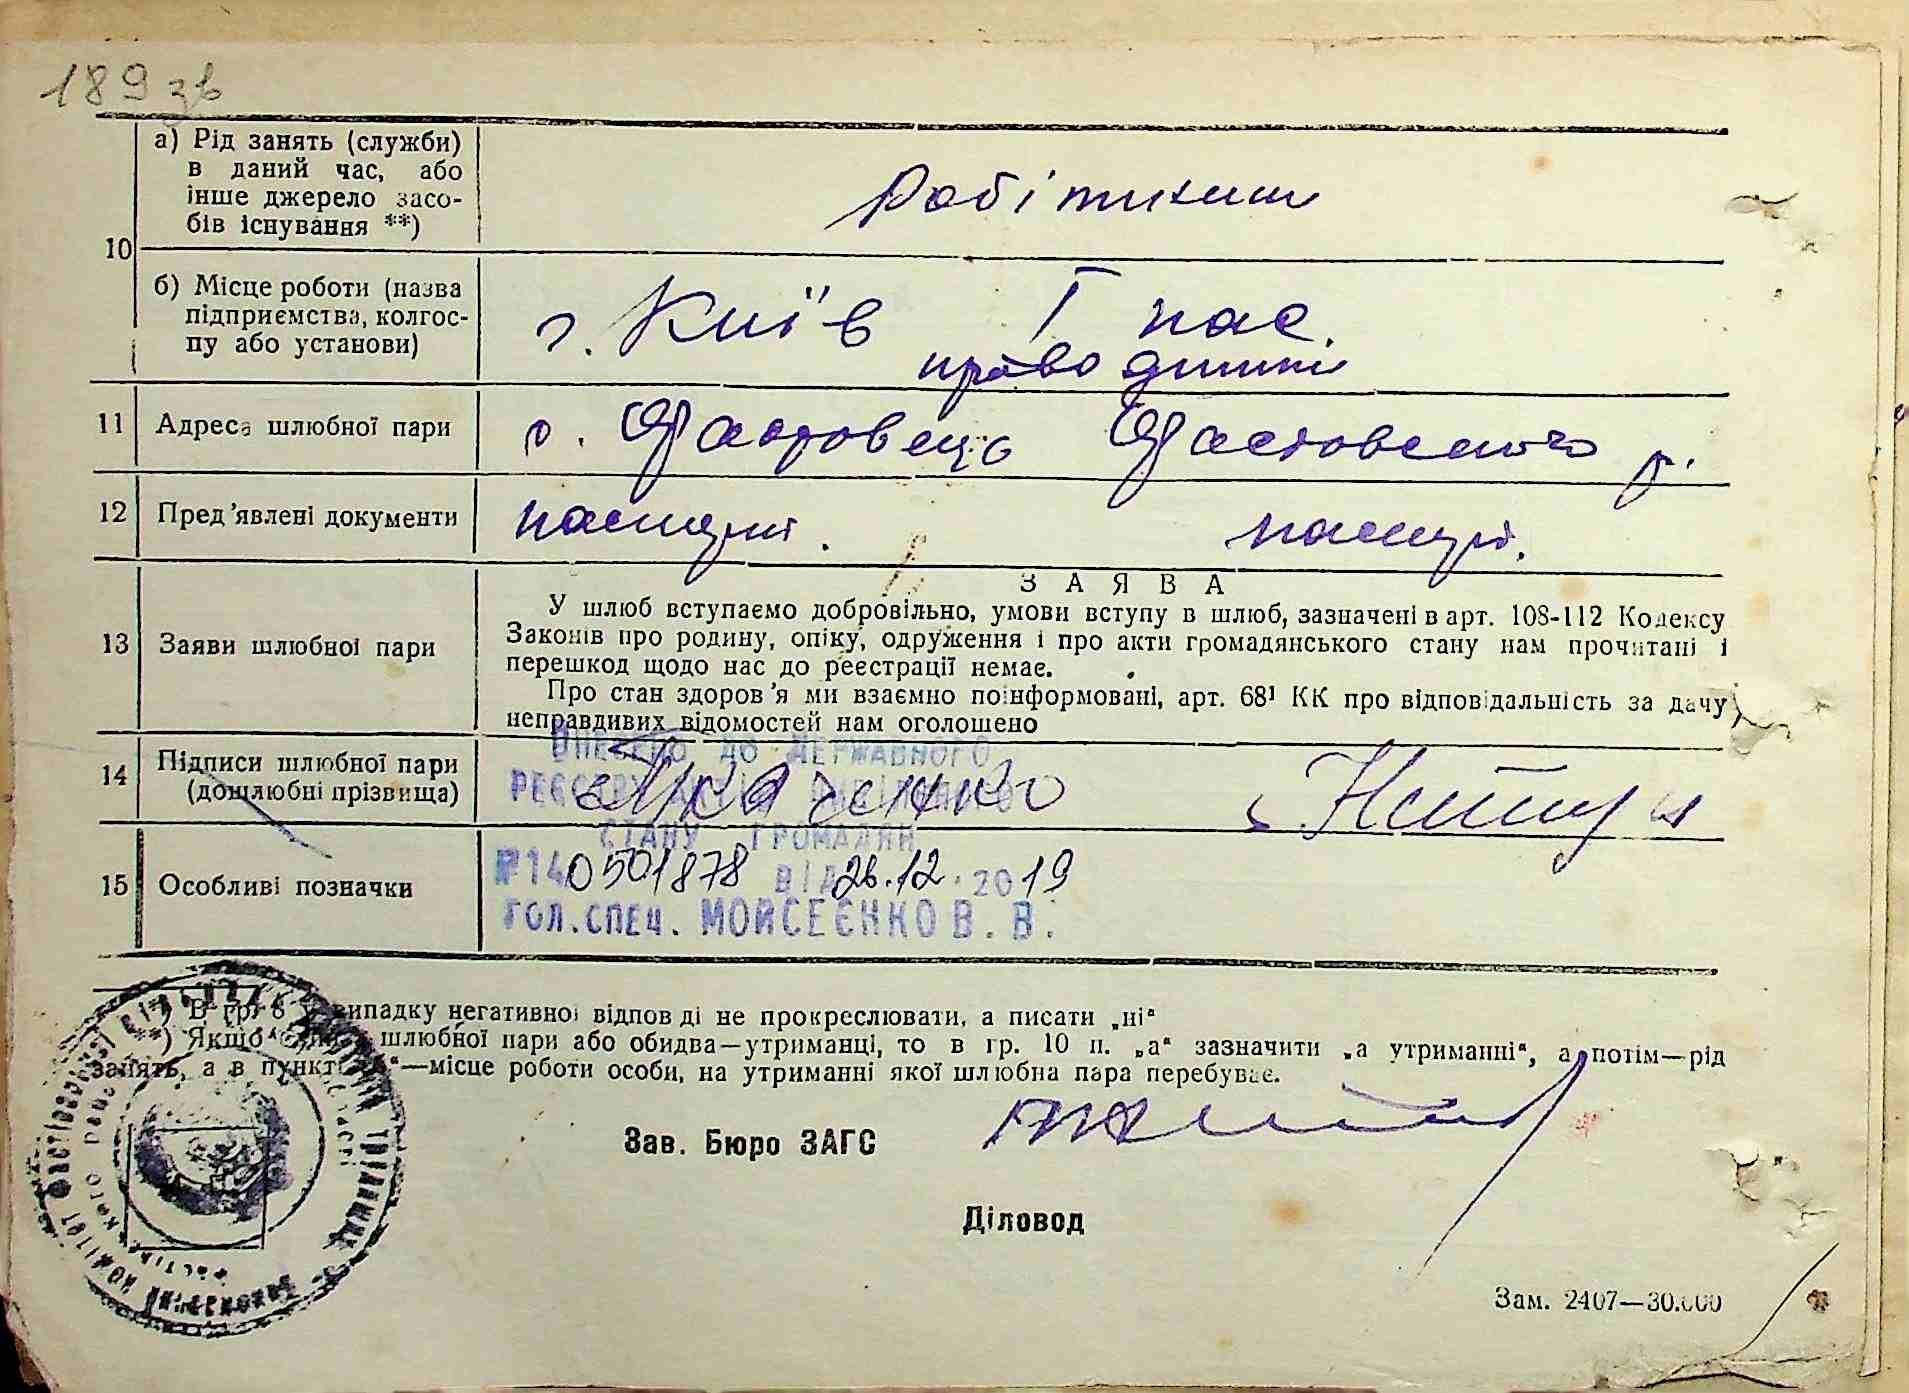 189 зв
а) Рід занять (служби)
в даний час, або
інше джерело засо-
бів існування **)
Робітниця
10
б) Місце роботи (назва
підприємства, колгос-
пу або установи)
г. Київ І пас.
11 Адреса шлюбної пари
с. Фастовець Фастовского р.
12 Пред'явлені документи
паспорт. паспорт.
ЗАЯВА
13 Заяви шлюбної пари
У шлюб вступаємо добровільно, умови вступу в шлюб, зазначені в арт. 108-112 Кодексу
Законів про родину, опіку, одруження і про акти громадянського стану нам прочитані і
перешкод щодо нас до реєстрації немає.
Про стан здоров'я ми взаємно поінформовані, арт. 68¹ КК про відповідальність за дачу
неправдивих відомостей нам оголошено
14 Підписи шлюбної пари
(дошлюбні прізвища)
ВНЕСЕНО ДО ДЕРЖАВНОГО
РЕЄСТРУ АКТІВ ЦИВІЛЬНОГО
СТАНУ ГРОМАДЯН
№140501878 ВІД 26.12.2019
ГОЛ.СПЕЦ. МОЙСЕЄНКО В. В.
15 Особливі позначки
*) В гр. 8 у випадку негативної відповіді не прокреслювати, а писати „ні“
**) Якщо шлюбної пари або обидва—утриманці, то в гр. 10 п. „а“ зазначити „а утриманні“, а потім—рід
занять, а в пункті „б“—місце роботи особи, на утриманні якої шлюбна пара перебуває.
Зав. Бюро ЗАГС
Діловод
Зам. 2407—30.000